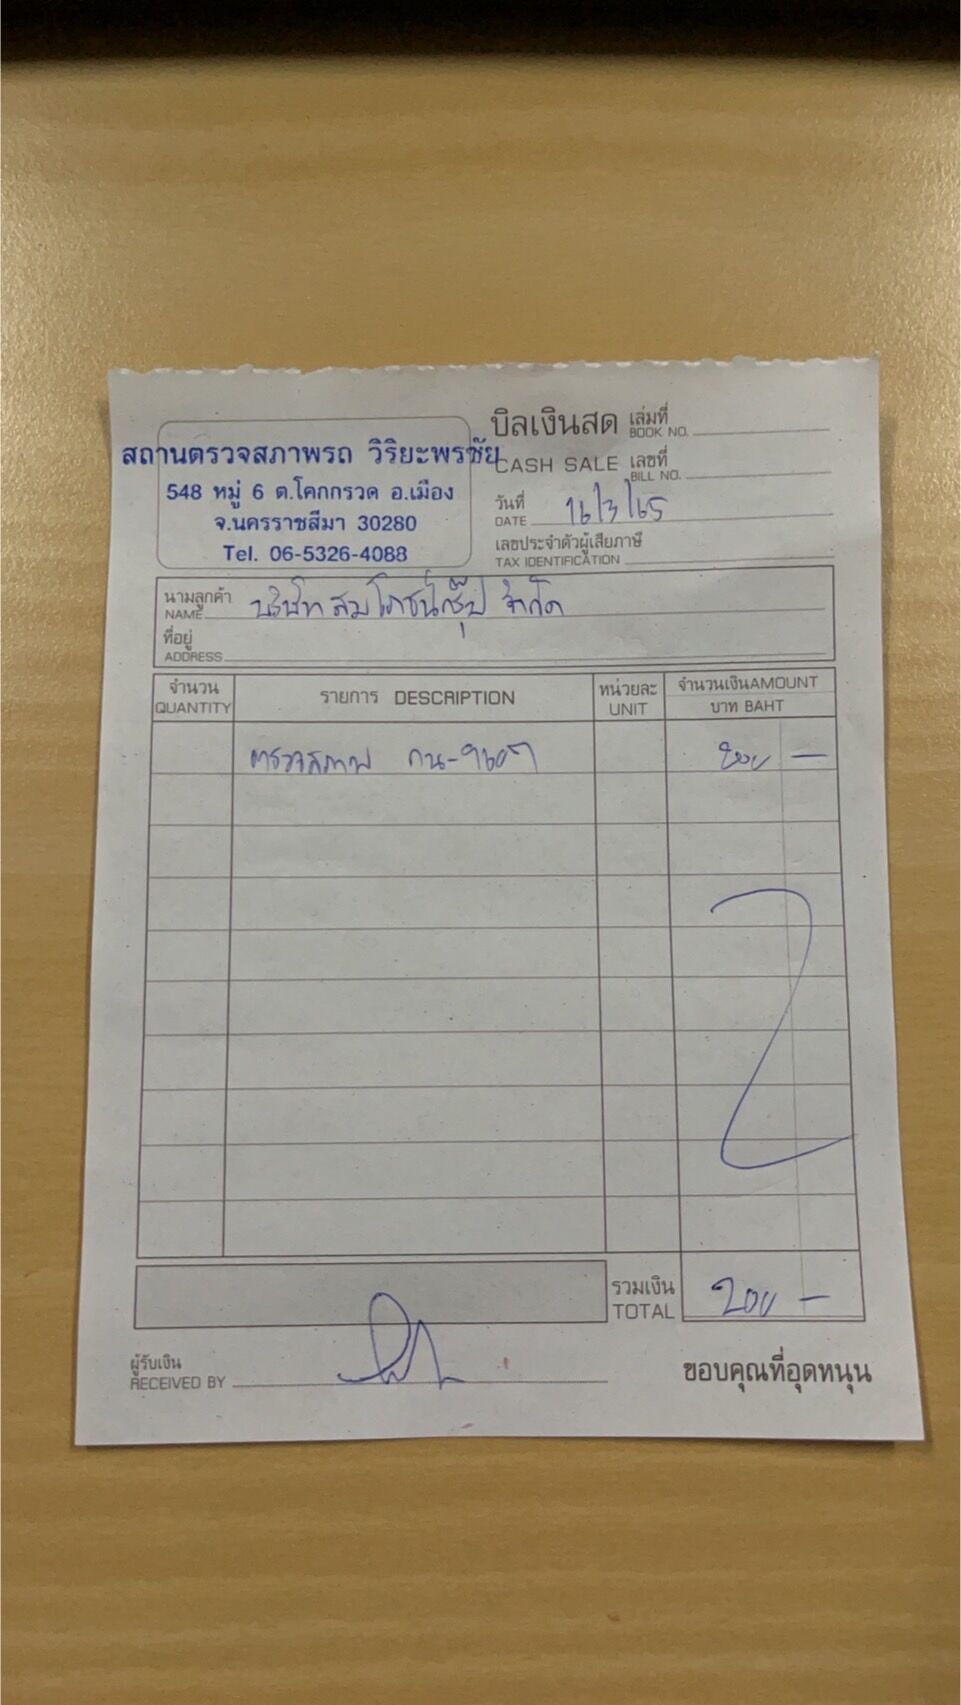 บิลเงินสด เล่มที่
BOOK NO.
สถานตรวจสภาพรถ วิริยะพรชัย
CASH SALE เลขที่
BILL NO.
548 หมู่ 6 ต.โคกกรวด อ.เมือง
จ.นครราชสีมา 30280
Tel. 06-5326-4088
วันที่
DATE 16/3/65
เลขประจำตัวผู้เสียภาษี
TAX IDENTIFICATION
นามลูกค้า
NAME บริษัท สมโภชน์กรุ๊ป จำกัด
ที่อยู่
ADDRESS
จำนวน รายการ DESCRIPTION หน่วยละ จำนวนเงินAMOUNT
QUANTITY UNIT บาท BAHT
ตรวจสภาพ กน- 200 -
รวมเงิน
TOTAL 200 -
ผู้รับเงิน
RECEIVED BY
ขอบคุณที่อุดหนุน